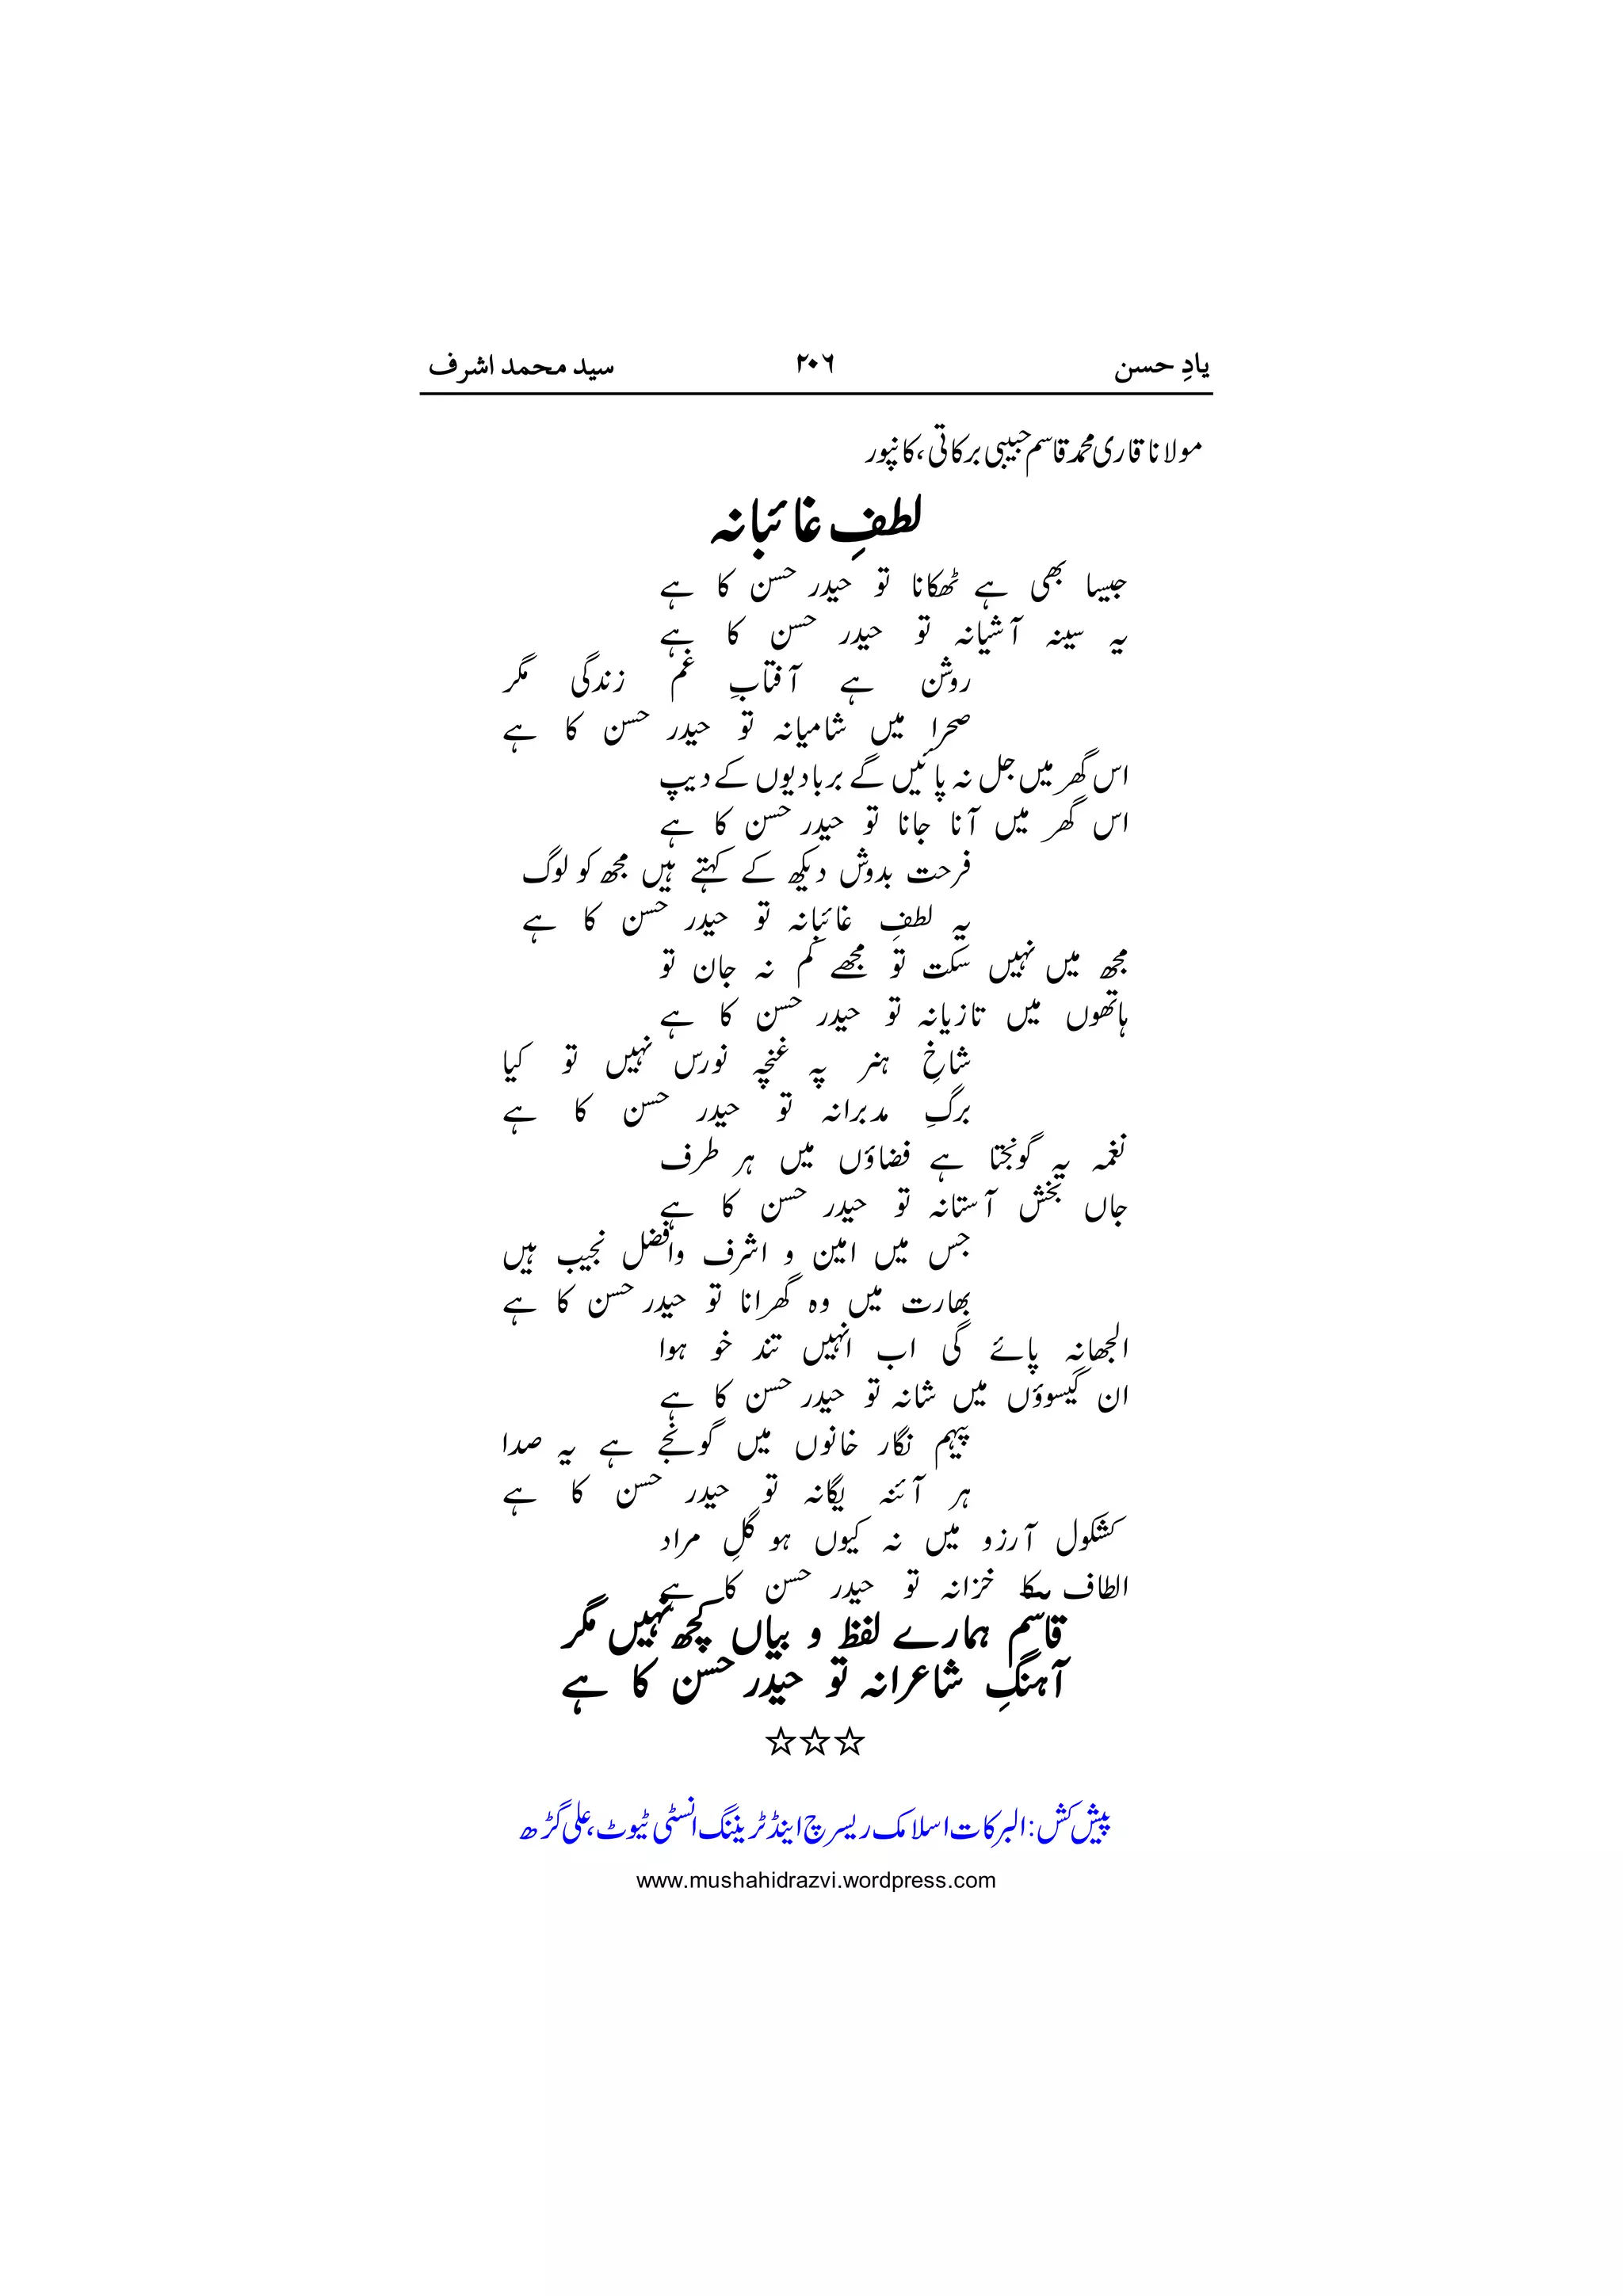 یادِ حسن ۲۰۶ سید محمد اشرف
مولانا قاری محمد قاسم حبیبی برکاتی، کانپور
لطفِ غائبانہ
جیسا بھی ہے ٹھکانا تو حیدر حسن کا ہے
یہ سینہ آشیانہ تو حیدر حسن کا ہے
روشن ہے آفتابِ غمِ زندگی مگر
صحرا میں شامیانہ تو حیدر حسن کا ہے
اس گھر میں جل نہ پائیں گے بربادیوں کے دیپ
اس گھر میں آنا جانا تو حیدر حسن کا ہے
فرحت بدوش دیکھ کے کہتے ہیں مجھ کو لوگ
یہ لطفِ غائبانہ تو حیدر حسن کا ہے
مجھ میں نہیں سکت تو مجھے کم نہ جان تو
ہاتھوں میں تازیانہ تو حیدر حسن کا ہے
شاخِ ہنر پہ غنچہ نورس نہیں تو ایک
برگِ مدبرانہ تو حیدر حسن کا ہے
نغمہ یہ گونجتا ہے فضاؤں میں ہر طرف
جاں بخش آستانہ تو حیدر حسن کا ہے
جس میں امین و اشرف وافضل نجیب ہیں
بھارت میں وہ گھرانا تو حیدر حسن کا ہے
الجھانہ پائے گی اب انہیں تند خو ہوا
ان گیسوؤں میں شانہ تو حیدر حسن کا ہے
پیہم نگار خانوں میں گونجے ہے یہ صدا
ہر آئنہ یگانہ تو حیدر حسن کا ہے
کشکول آرزو میں نہ کیوں ہو گلِ مراد
الطاف کا خزانہ تو حیدر حسن کا ہے
قاسم ہمارے لفظ و بیاں کچھ نہیں مگر
آہنگِ شاعرانہ تو حیدر حسن کا ہے
☆☆☆
پیش کش: البرکات اسلامک ریسرچ اینڈ ٹریننگ انسٹی ٹیوٹ، علی گڑھ
www.mushahidrazvi.wordpress.com